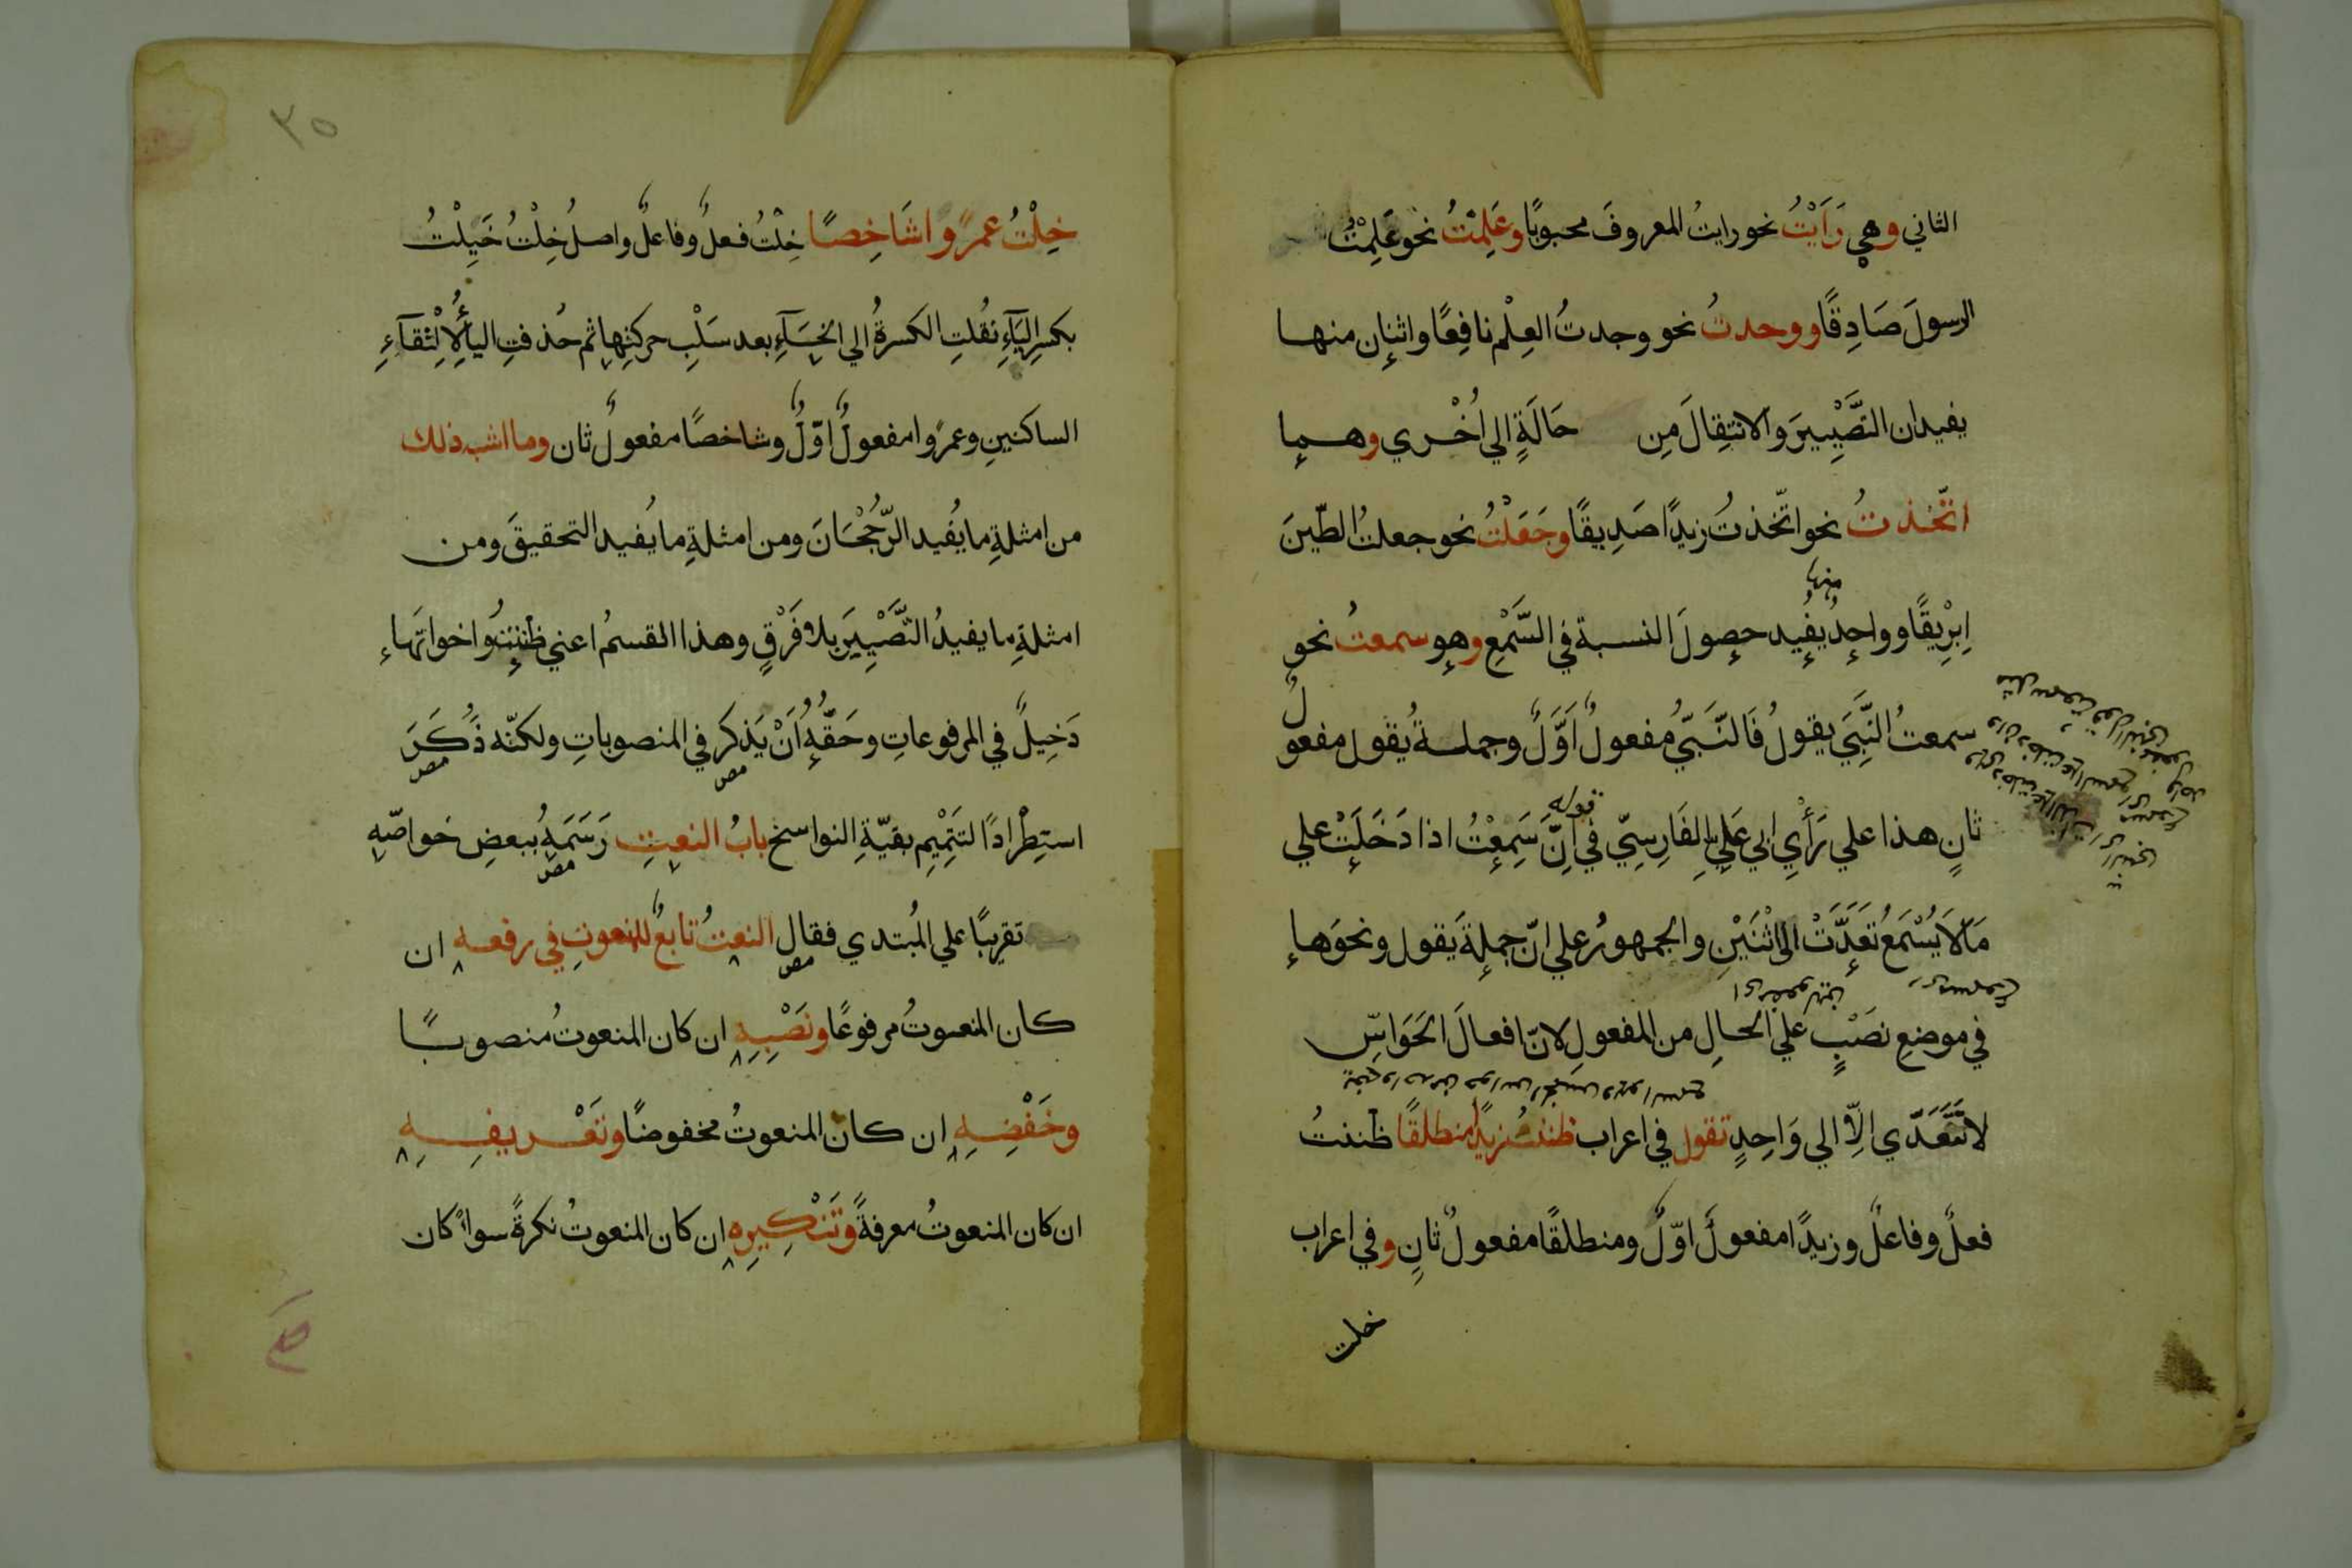 الثاني وهي رَاَيْتُ نحو رايتُ المعروفَ محبوبًا وعَلِمْتُ نحو عَلِمْتُ
الرسولَ صَادِقًا ووجدتُ نحو وجدتُ العِلْم نافِعًا واثنان منها
يفيدان التَّصْيِيرَ والانتِقالَ مِن حَالَةٍ الي اُخْري وهما
اتّخذتُ نحو اتّخذتُ زيدًا صَدِيقًا وجَعَلْتُ نحو جعلتُ الطّينَ
اِبرِيْقًا وواحِدٌ منها يُفيد حصولَ النسبة في السَّمْعِ وهو سمعتُ نحو
سمعتُ النَّبِيَّ يقولُ فَالنَّبيُّ مُفعولٌ اَوَّلٌ وجملة يُقول مفعولٌ
ثانٍ هذا علي رَأْيِ ابي عَلِيٍّ الفَارِسِيّ في قوله اَنَّ سَمِعْتُ اذا دَخَلَتْ علي
مَا لَا يُسْمَعُ تَعَدَّتْ الى اثْنَيْنِ والجمهورُ علي انّ جملةَ يَقول ونحوَها
في موضعِ نصَبٍ علي الحالِ من المفعولِ لانّ افعالَ الحَوَاسِّ
لا تَتَعَدّي اِلاّ الي وَاحِدٍ تقول في اعراب ظننتُ زيدًا منطلقًا ظننتُ
فعلٌ وفاعلٌ وزيدًا مفعولٌ اوّلٌ ومنطلقًا مفعولٌ ثانٍ وفي اعراب
خلت
٣٥
خِلْتُ عمرًوا شَاخِصًا خِلْتُ فعلٌ وفاعلٌ واصلُ خِلْتُ خَيِلْتُ
بكسرِ اليَآءِ نقُلتِ الكسرةُ الي الخَآءِ بعد سَلْبِ حركتِها ثم حُذفتِ اليأُ لِالْتِقآءِ
الساكنينِ وعمرًوا مفعولٌ اوّلٌ وشاخصًا مفعولٌ ثان وما اشبه ذلك
من امثلةِ ما يُفيد الرّجُحْانَ ومن امثلةِ ما يُفيد التحقيقَ ومن
امثلةِ ما يفيدُ التَّصْيِيرَ بلا فَرْقٍ وهذا القسمُ اعني ظننتُ واخواتَها
دَخِيلٌ في المرفوعاتِ وحَقُّهُ اَنْ يَذكر في المنصوباتِ ولكنّه ذُكَرَ
استِطْرادًا لتَتِمْيم بقيّةِ النواسخ بابُ النعتِ رَسَمَهُ ببعضِ خواصّهِ
تقريبًا علي المُبتدي فقال النعتُ تابعٌ للمنعوتِ في رفعه ان
كان المنعوتُ مرفوعًا ونَصْبِهِ ان كان المنعوتُ منصوبًا
وخَفْضِهِ ان كان المنعوتُ مخفوضًا وتَعْريفِهِ
ان كان المنعوتُ معرفةً وتَنْكِيرِه ان كان المنعوتُ نكرةً سواءٌ كان